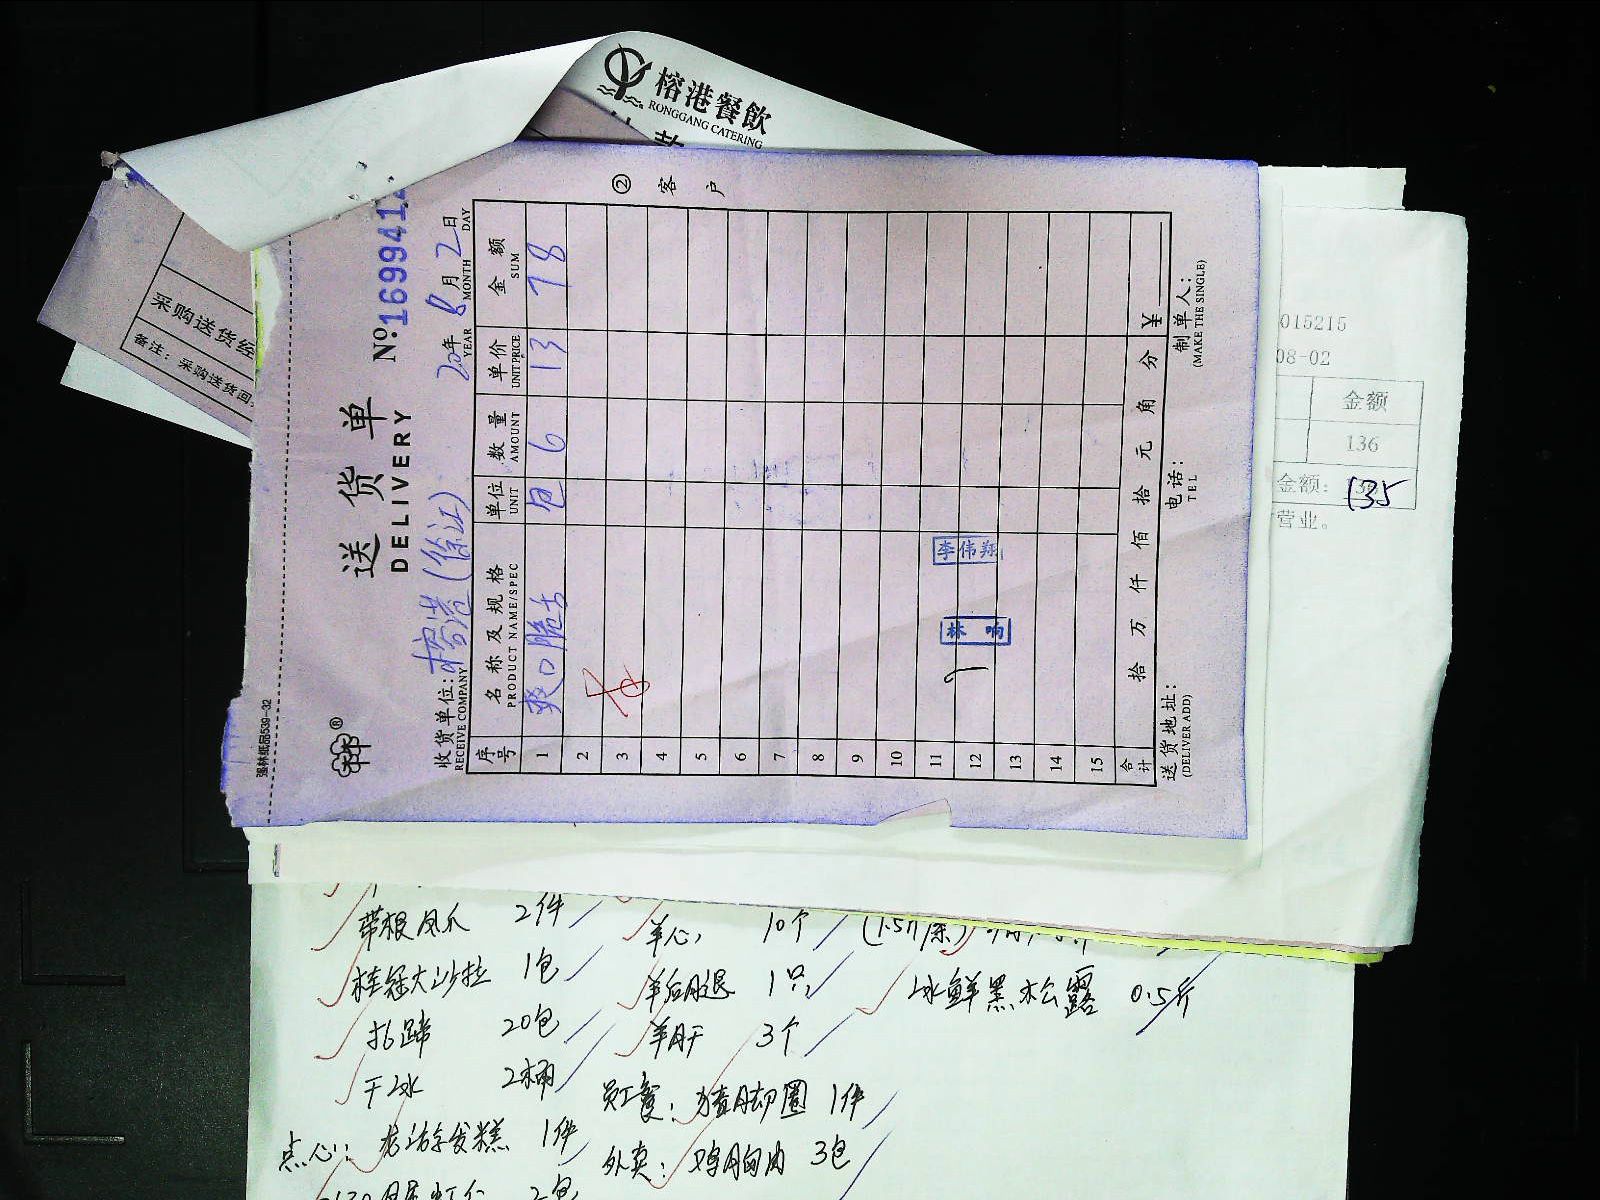 榕港餐飲
RONGGANG CATERING
采购送货经
备注：采购送货回
② 客户
强林纸品539-32
林®
送货单
DELIVERY
No:1699414
收货单位:榕港（徐江） 2020年8月2日
RECEIVE COMPANY YEAR MONTH DAY
序号 名称及规格 单位 数量 单价 金额
PRODUCT NAME/SPEC UNIT AMOUNT UNIT PRICE SUM
1 爽口脆舌 包 6 13 78
2
3
4
5
6
7
8
9
10
11 李伟翔
12 林 响
13
14
15
合计 拾 万 仟 佰 拾 元 角 分 ¥
送货地址: 电话: 制单人:
(DELIVER ADD) TEL (MAKE THE SINGLE)
015215
08-02
金额
136
金额: 135
营业。
带根凤爪 2件 羊心 10个 (1.5斤/条)
桂冠大沙拉 1包 羊后腿 1只 冰鲜黑松露 0.5斤
扎蹄 20包 羊肝 3个
干冰 2桶 员工餐: 猪脚圈 1件
点心: 1件 外卖: 鸡胸肉 3包
2包